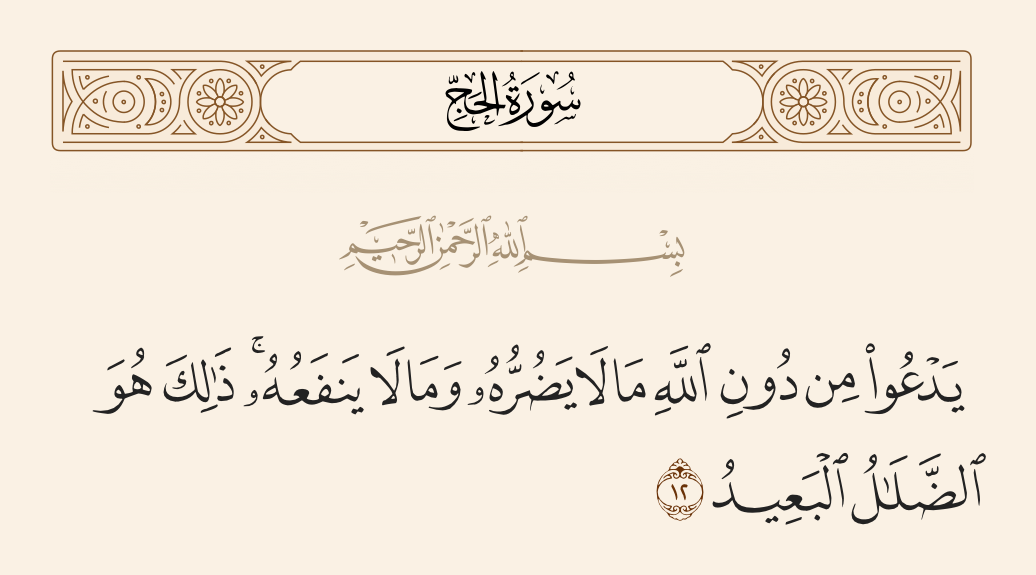 سُورَةُ الحَجِّ
بِسْمِ ٱللَّهِ ٱلرَّحْمَٰنِ ٱلرَّحِيمِ
يَدْعُوا۟ مِن دُونِ ٱللَّهِ مَا لَا يَضُرُّهُۥ وَمَا لَا يَنفَعُهُۥ ۚ ذَٰلِكَ هُوَ
ٱلضَّلَٰلُ ٱلْبَعِيدُ ١٢